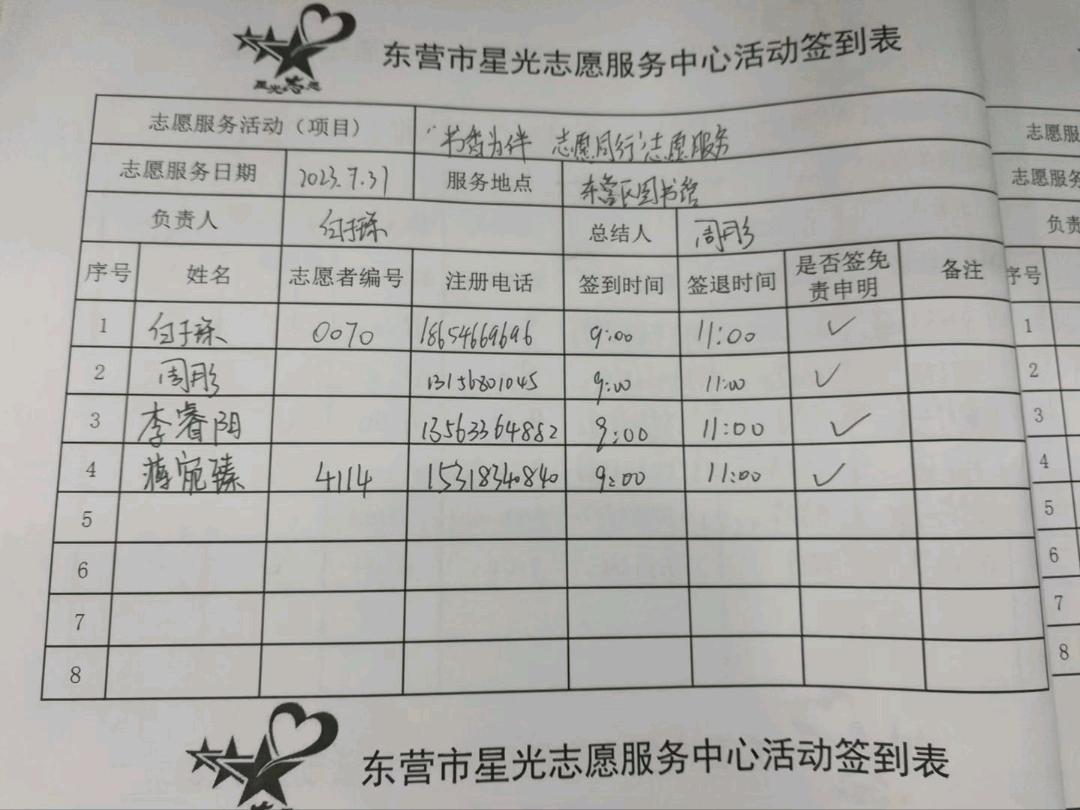 星光志愿
东营市星光志愿服务中心活动签到表
志愿服务活动（项目） “书香为伴 志愿同行”志愿服务
志愿服务日期 2023.7.31 服务地点 东营区图书馆
负责人 付于珠 总结人 周彤
序号 姓名 志愿者编号 注册电话 签到时间 签退时间 是否签免责申明 备注
1 付于珠 0070 18654669696 9:00 11:00 ✓
2 周彤 13156801045 9:00 11:00 ✓
3 李睿阳 13563364882 9:00 11:00 ✓
4 蒋宛臻 4114 15318340840 9:00 11:00 ✓
5
6
7
8
志愿服
志愿服务
负责
序号
1
2
3
4
5
6
7
8
东营市星光志愿服务中心活动签到表